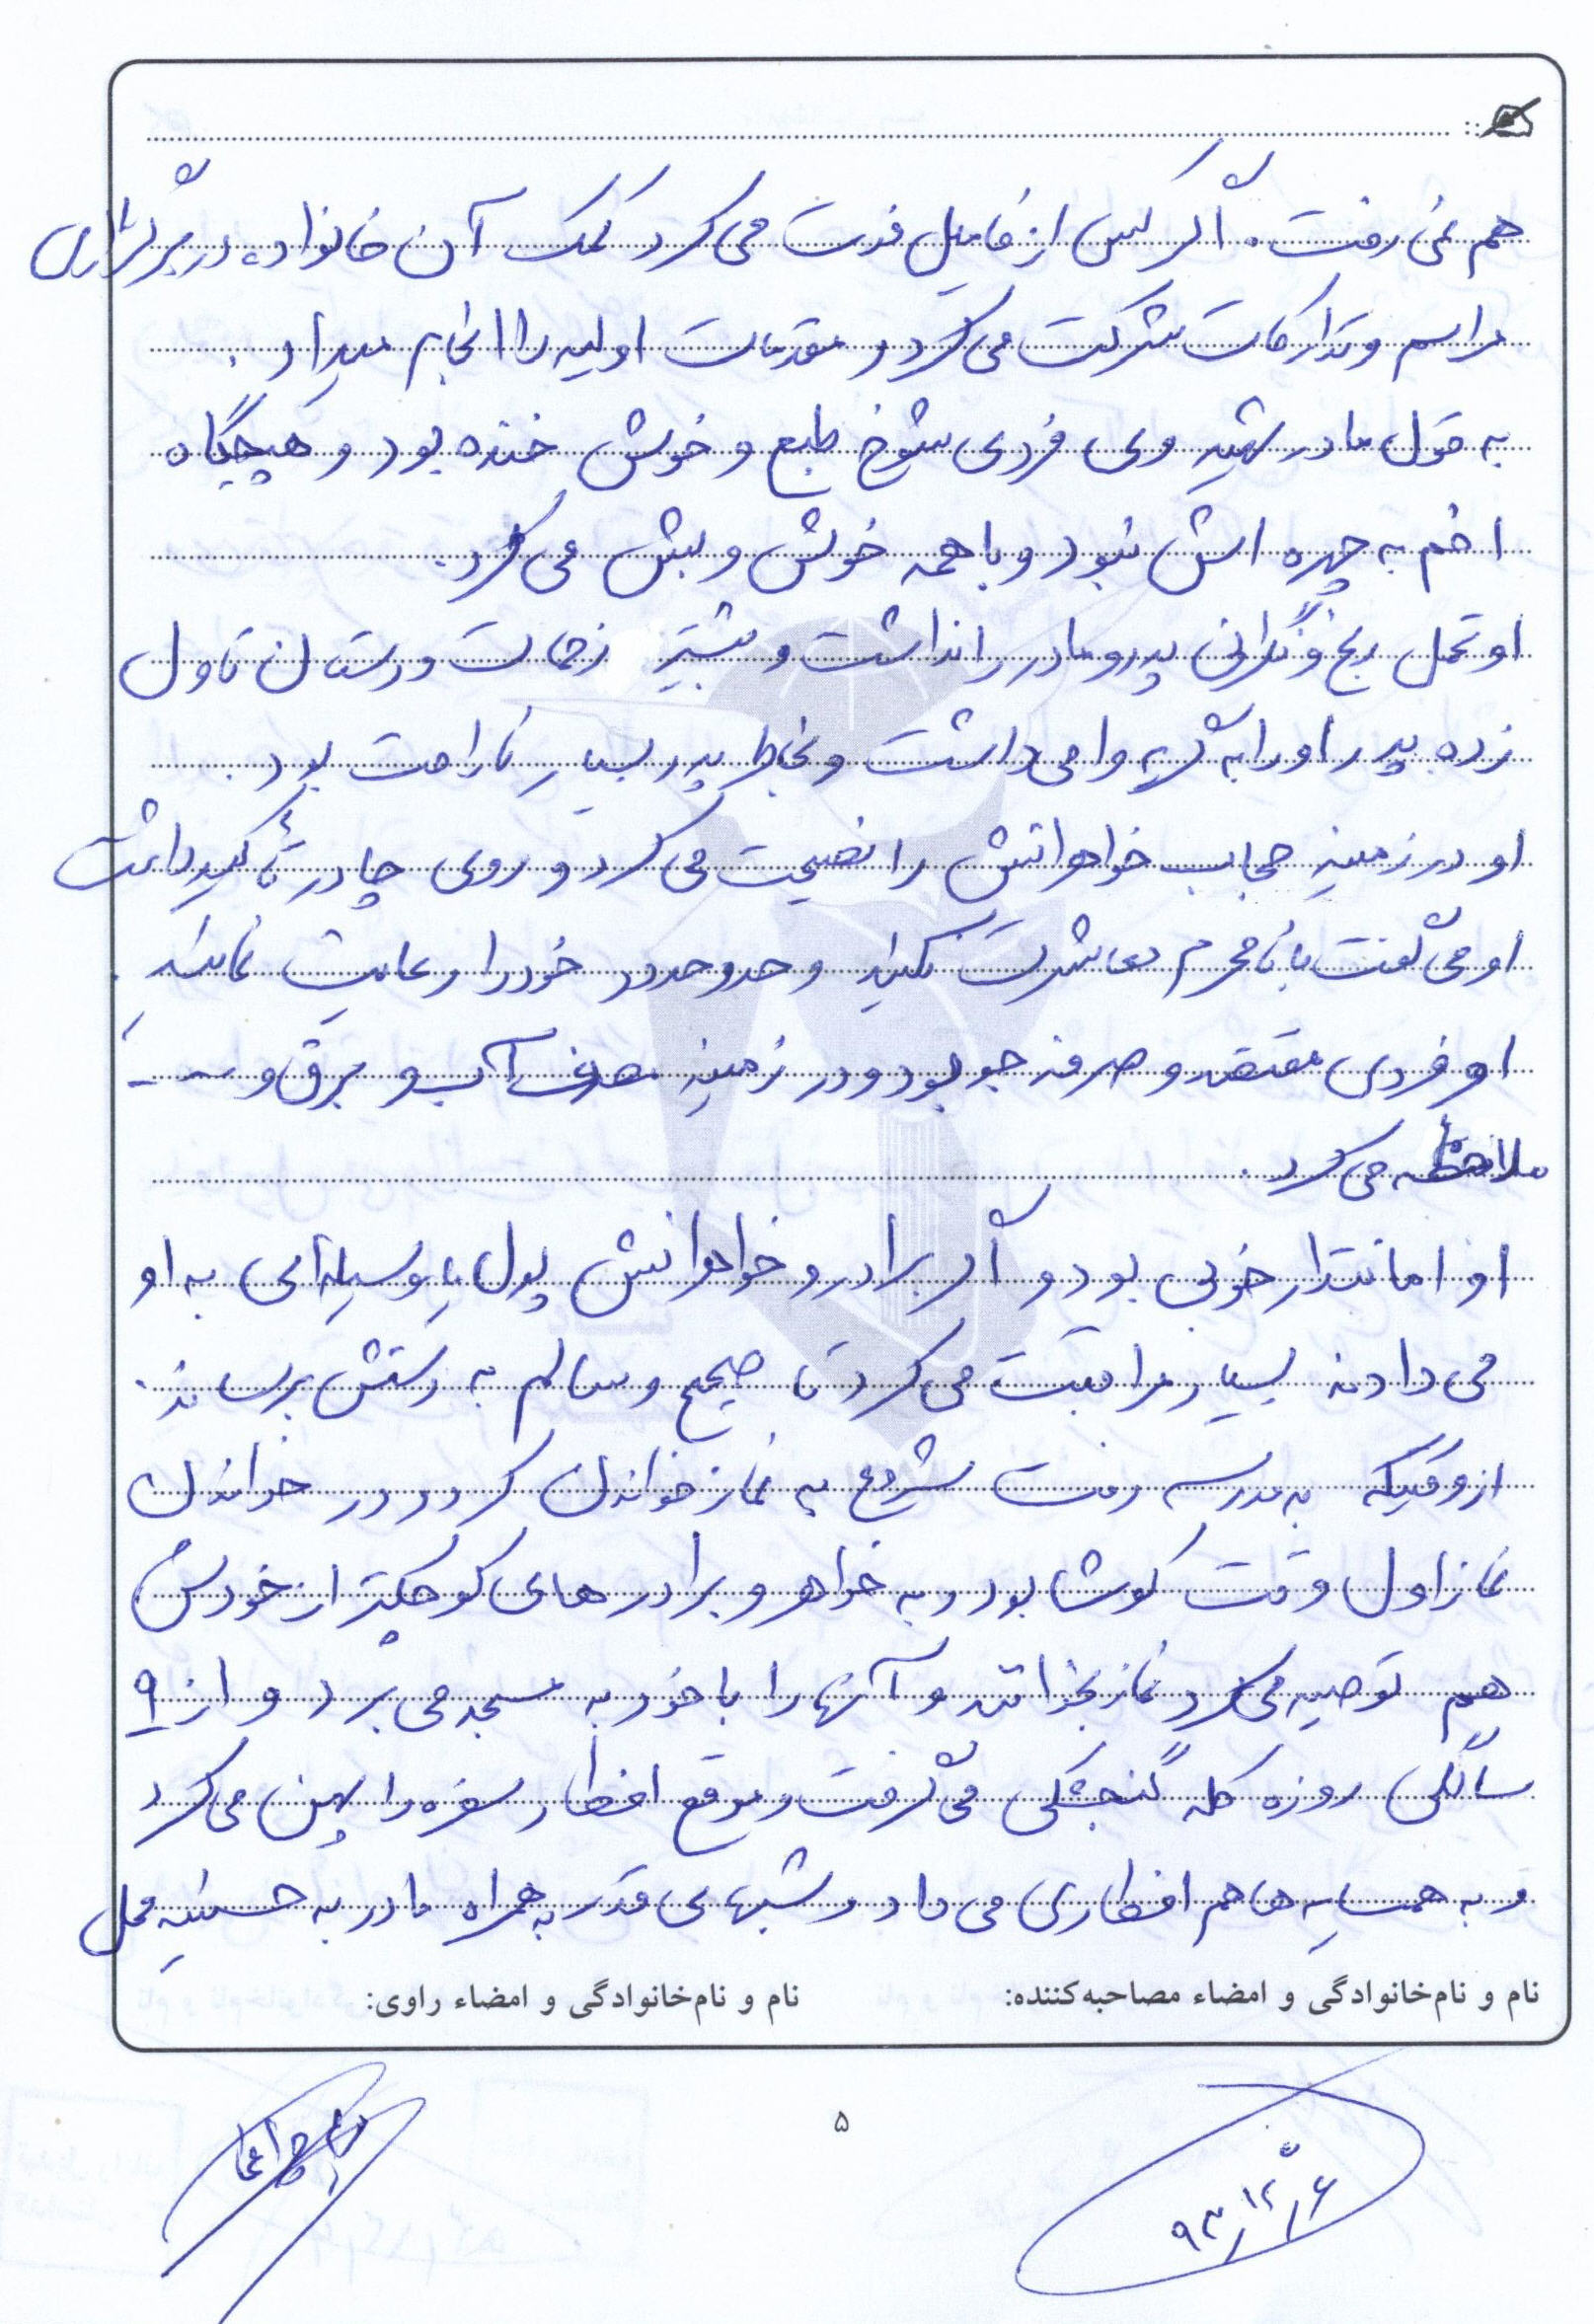 هم نمی رفت. اگر کسی از فامیل فوت می کرد کمک آن خانواده در برگزاری
مراسم و تدارکات شرکت می کرد و مقدمات اولیه را انجام میداد.
به قول مادر شهید وی فردی شوخ طبع و خوش خنده بود و هیچگاه
اخم به چهره اش نبود و با همه خوش و بش می کرد.
او تحمل رنج و نگرانی پدر و مادر را نداشت و بیشتر زحمات و دستان تاول
زده پدر او را به گریه وا می داشت و بخاطر پدر بسیار ناراحت بود.
او در زمینه حجاب خواهرانش را نصیحت می کرد و روی چادر تأکید داشت
او می گفت با نامحرم معاشرت نکنید و حد و حدود خود را رعایت نمائید.
او فردی مقتصد و صرفه جو بود و در زمینه مصرف آب و برق و ...
ملاحظه می کرد.
او امانتدار خوبی بود و اگر برادر و خواهرانش پول یا وسیله ای به او
می دادند بسیار مراقبت می کرد تا صحیح و سالم به دستش برساند.
از وقتیکه به مدرسه رفت شروع به نماز خواندن کرد و در خواندن
نماز اول وقت کوشا بود و به خواهر و برادرهای کوچکتر از خودش
هم توصیه می کرد نماز بخوانند و آنها را با خود به مسجد می برد و از ۹
سالگی روزه کله گنجشکی می گرفت و موقع افطار سفره را پهن می کرد
و به همسایه ها هم افطاری می داد و شبهای قدر به همراه مادر به حسینیه محل
نام و نام‌خانوادگی و امضاء مصاحبه‌کننده: نام و نام‌خانوادگی و امضاء راوی:
۵
۹۳/۱۲/۶